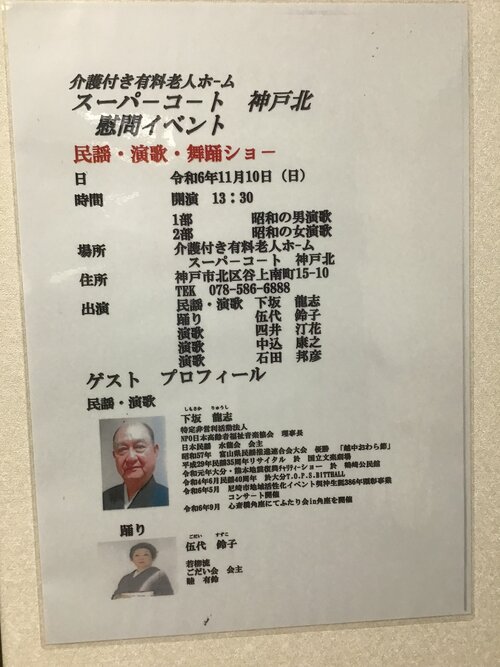 介護付き有料老人ホーム
スーパーコート 神戸北
慰問イベント
民謡・演歌・舞踊ショー
日 令和6年11月10日(日)
時間 開演 13:30
1部 昭和の男演歌
2部 昭和の女演歌
場所 介護付き有料老人ホーム
スーパーコート 神戸北
住所 神戸市北区谷上南町15-10
TEK 078-586-6888
出演 民謡・演歌 下坂 龍志
踊り 伍代 鈴子
演歌 四井 汀花
演歌 中込 康之
演歌 石田 邦彦
ゲスト プロフィール
民謡・演歌
しもさか りゅうし
下坂 龍志
特定非営利活動法人
NPO日本高齢者福祉音楽協会 理事長
日本民謡 水龍会 会主
昭和57年 富山県民謡推進連合会大会 優勝 「越中おわら節」
平成29年民謡35周年リサイタル 於 国立文楽劇場
令和元年大分・熊本地震復興チャリティーショー 於 鶴崎公民館
令和4年6月民謡40周年 於大分T.O.P.S.BITTHALL
令和5年5月 尼崎市地域活性化イベント契沖生誕386年顕彰事業
コンサート開催
令和6年9月 心斎橋角座にてふたり会in角座を開催
踊り
ごだい すずこ
伍代 鈴子
若柳流
ごだい会 会主
睦 有鈴